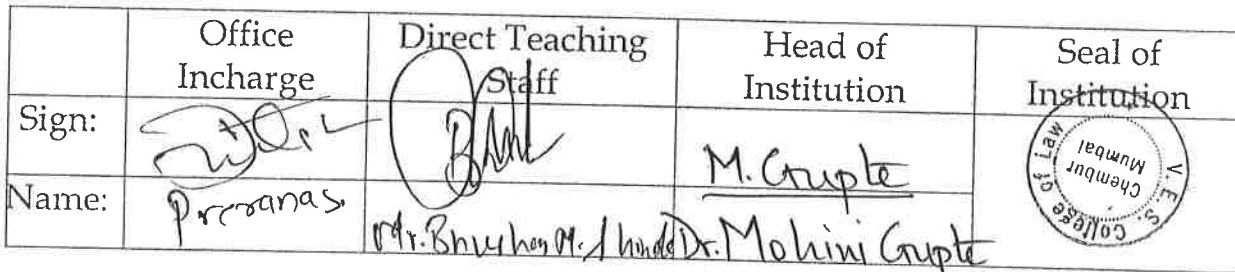 Office Incharge
Direct Teaching Staff
Head of Institution
Seal of Institution
Sign:
M. Gupte
V. E. S. College of Law
Chembur
Mumbai
Name:
Prerana S.
Mr. Bhushan
Dr. Mohini Gupte